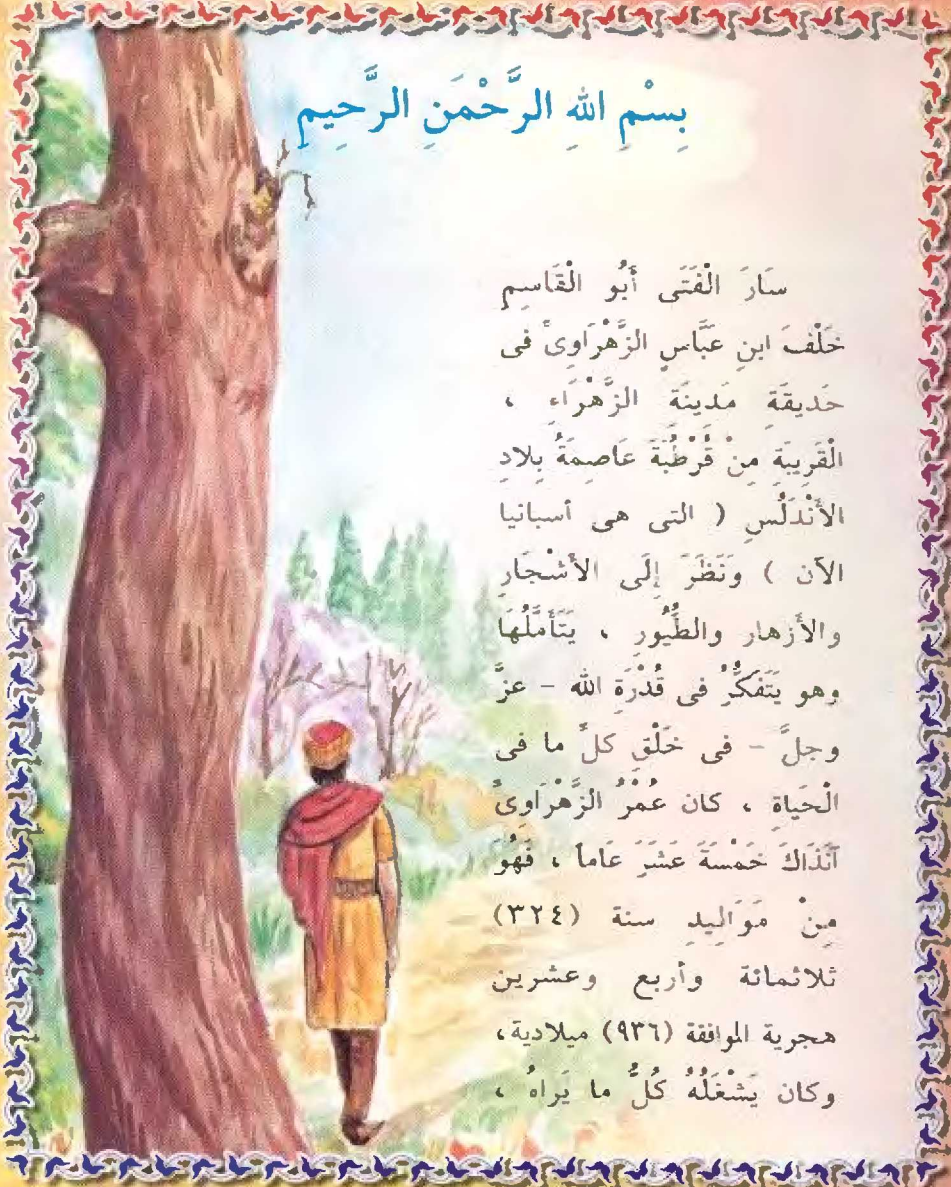 بِسْمِ اللهِ الرَّحْمَنِ الرَّحِيمِ
سَارَ الْفَتَى أَبُو الْقَاسِمِ
خَلْفَ ابنِ عَبَّاسٍ الزَّهْرَاوِىُّ فى
حَدِيقَةِ مَدِينَةِ الزَّهْرَاءِ ،
الْقَرِيبَةِ مِنْ قُرْطُبَةَ عَاصِمَةُ بِلَادِ
الأَنْدَلُسِ ( التى هى أسبانيا
الآن ) وَنَظَرَ إِلَى الأَشْجَارِ
والأَزهار والطُّيُورِ ، يَتَأَمَّلُهَا
وهو يَتَفَكَّرُ فى قُدْرَةِ الله - عزَّ
وجلَّ - فى خَلْقِ كلِّ ما فى
الْحَيَاةِ ، كان عُمْرُ الزَّهْرَاوِىُّ
آنَذَاكَ خَمْسَةَ عَشَرَ عَاماً ، فَهُوَ
مِنْ مَوَالِيدِ سنة (٣٢٤)
ثلاثمائة وأربع وعشرين
هجرية الموافقة (٩٣٦) ميلادية،
وكان يَشْغَلُهُ كُلُّ ما يَراهُ ،